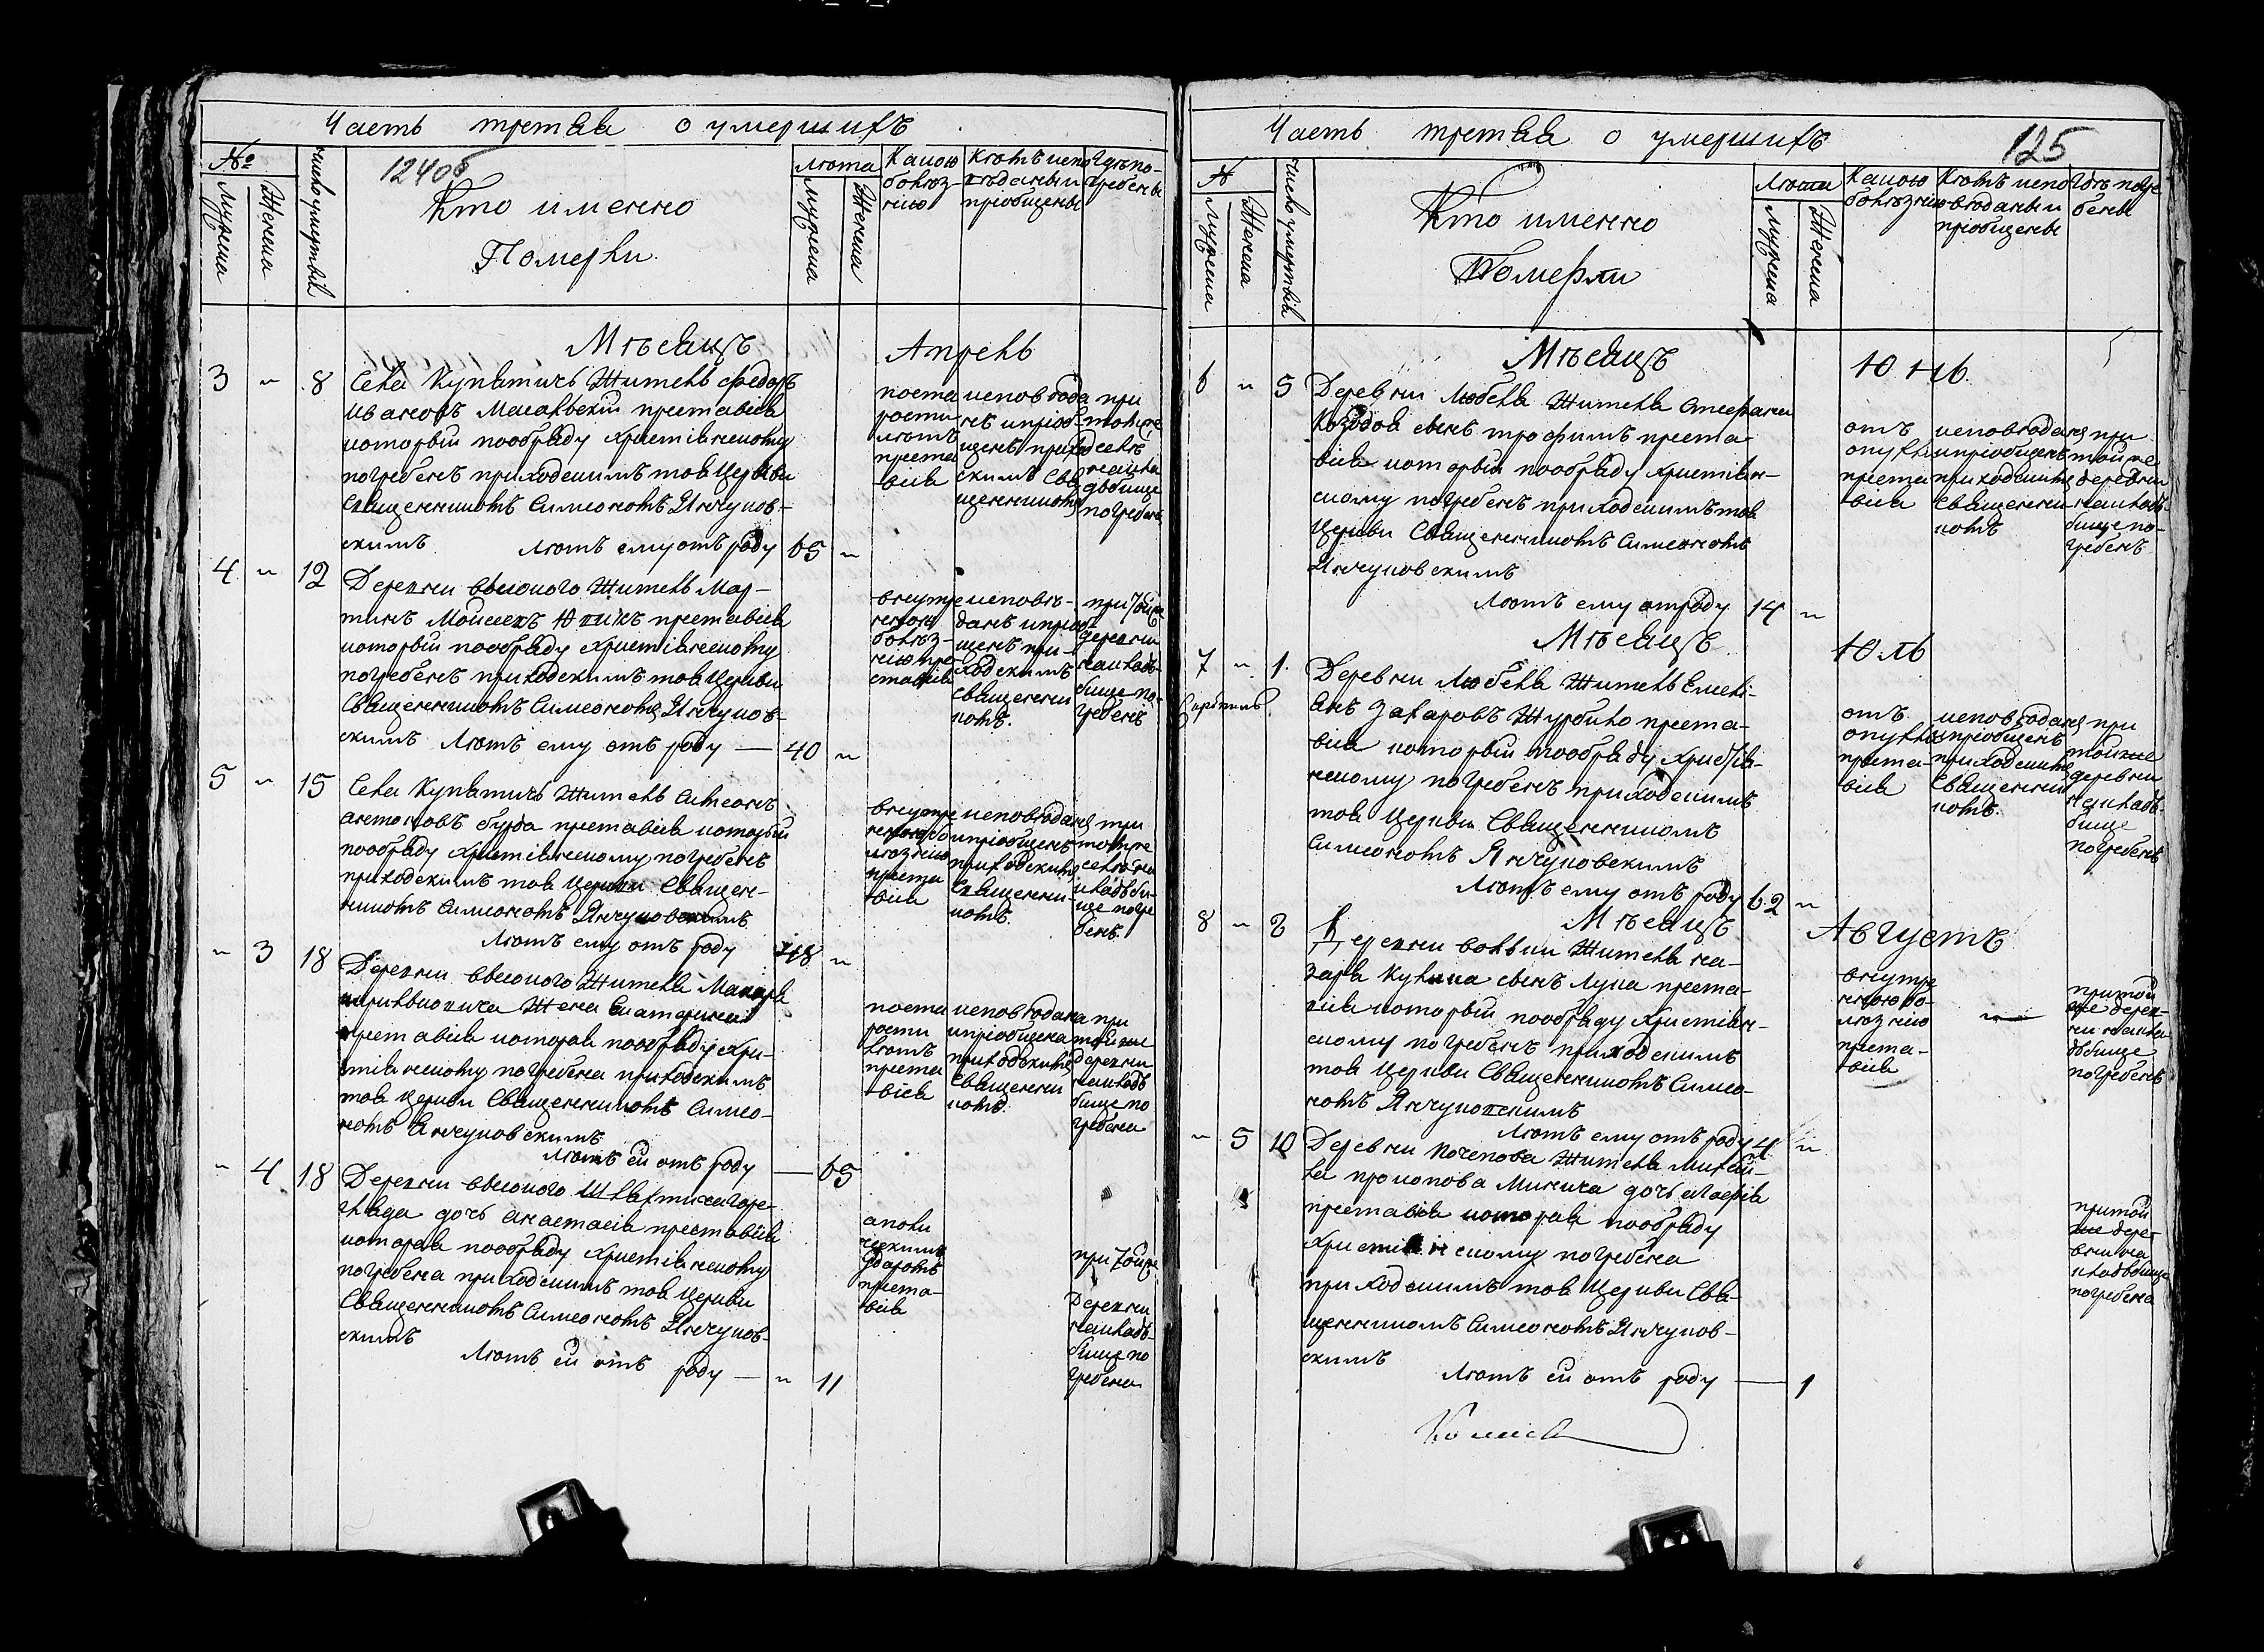 Часть третая о умершихъ
124об
№
Мужеска
Женска
число умертвій
Кто именно
Померли
лѣта
Мужеска
Женска
Какою
болѣз-
нію
Кѣмъ испо
вѣданы и
пріобщены
Гдѣ по-
гребены
Мѣсяцъ Апрель
3 " 8 Села Купятичь Житель Федоръ
Ивановъ преставися
который пообряду Христіанскому
погребенъ приходскимъ тоя Церкви
Священникомъ Симеономъ Янчуков-
скимъ лѣтъ ему отъ роду 65 "
поста
рости
лѣтъ
преста
вися
исповѣда
нъ и пріоб-
щенъ прихо
скимъ Свя
щенникомъ
при
томъ же
селѣ
накла
дбище
погребенъ
4 " 12 Деревни Высокого Житель Мар-
тинъ преставися
который пообряду Христіанскому
погребенъ приходскимъ тоя Церкви
Священникомъ Симеономъ Янчуков-
скимъ лѣтъ ему отъ роду — 40 "
внутре
нною
болѣз-
нію пре
ставися
исповѣ-
данъ и пріоб
щенъ при-
ходскимъ
Священни
комъ.
при той же
деревни
накладъ
бище по-
гребенъ
5 " 15 Села Купятичь Житель Симеонъ
антоновъ бурда преставися который
пообряду Христіанскому погребенъ
приходскимъ тоя Церкви Священ-
никомъ Симеономъ Янчуковскимъ
лѣтъ ему отъ роду 48 "
внутре
нною бо
лѣзнію
преста
вися
исповѣданъ
и пріобщенъ
приходскимъ
Священни-
комъ.
при
томже
селѣ на
кладъби-
ще погре
бенъ.
" 3 18 Деревни Высокого Жителя Макара
Жена Екатерина
преставися которая пообряду Хри-
стіанскому погребена приходскимъ
тоя Церкви Священникомъ Симео-
номъ Янчуковскимъ
лѣтъ ей отъ роду — 65
поста
рости
лѣтъ
преста
вися
исповѣдана
и пріобщена
приходскимъ
Священни
комъ.
при
той же
деревни
накладъ
бище по
гребена
" 4 18 Деревни Высокого Шляхтича
дочь анастасія преставися
которая пообряду Христіанскому
погребена приходскимъ тоя Церкви
Священникомъ Симеономъ Янчуков-
скимъ
лѣтъ ей отъ роду — " 11
апопли
ческимъ
ударомъ
преста-
вися
при той же
Деревни
накладъ-
бище по
гребена
Часть третая о умершихъ
125
№
Мужеска
Женска
число умертвій
Кто именно
Померли
лѣта
Мужеска
Женска
Какою
болѣзнію
Кѣмъ испо
вѣданы и
пріобщены
Гдѣ погре
бены
Мѣсяцъ Юнь.
6 " 5 Деревни Любеля Жителя Стефана
сынъ трофимъ преста-
вися который пообряду Христіан-
скому погребенъ приходскимъ тоя
Церкви Священникомъ Симеономъ
Янчуковскимъ
лѣтъ ему отроду 14 "
отъ
опухли
преста
вися
исповѣданъ
и пріобщенъ
приходскимъ
Священни-
комъ
при
той же
деревни
накладъ-
бище по-
гребенъ
Мѣсяцъ Юль
7 " 1. Деревни Любеля Житель Емелі-
анъ Захаровъ преста-
вися который пообряду Христіа-
нскому погребенъ приходскимъ
тоя Церкви Священникомъ
Симеономъ Янчуковскимъ
лѣтъ ему отъ роду 62 "
отъ
опухли
преста-
вися
исповѣданъ
и пріобщенъ
приходскимъ
Священни
комъ.
при
той же
деревни
накладъ-
бище
погребенъ
Мѣсяцъ Августъ
8 " 8 Деревни Жителя на-
зара сынъ Лука преста-
вися который пообряду Христіан-
скому погребенъ приходскимъ
тоя Церкви Священникомъ Симео-
номъ Янчуковскимъ
лѣтъ ему отъ роду 4 "
внутре
нною бо-
лѣзнію
преста-
вися
—
при той
же дерев-
ни накла-
дъбище
погребенъ
" 5 10 Деревни Почепова Жителя Михай-
ла дочь
преставися которая пообряду
Христіанскому погребена
приходскимъ тоя Церкви Свя-
щенникомъ Симеономъ Янчуков-
скимъ
лѣтъ ей отъ роду — 1
при той
же дере-
вни на
кладъбище
погребена